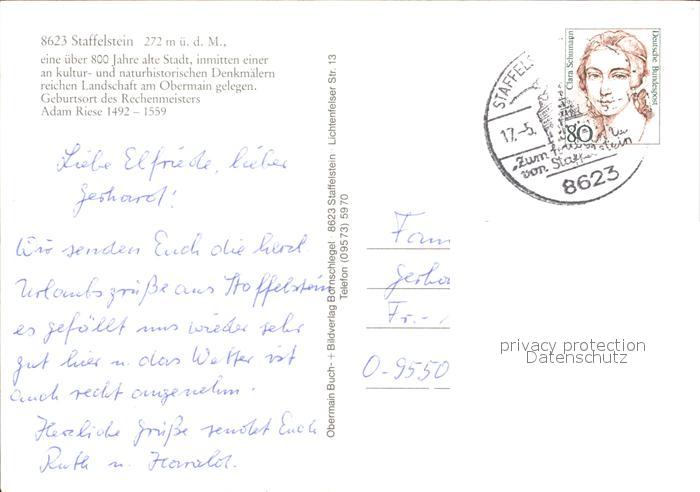 8623 Staffelstein 272 m ü. d. M.,
eine über 800 Jahre alte Stadt, inmitten einer
an kultur- und naturhistorischen Denkmälern
reichen Landschaft am Obermain gelegen.
Geburtsort des Rechenmeisters
Adam Riese 1492 – 1559
Liebe Elfriede, lieber
Gerhard!
Wir senden Euch die herzl
Urlaubsgrüße aus Staffelstein
es gefällt uns wieder sehr
gut hier u. das Wetter ist
auch recht angenehm.
Herzliche Grüße sendet Euch
Ruth u. Harald.
Obermain Buch- + Bildverlag Bornschlegel · 8623 Staffelstein Lichtenfelser Str. 13
Telefon (09573) 5970
Clara Schumann
Deutsche Bundespost
80
STAFFELS
17.-5.
"Zum
von Staffelstein
8623
Fam
Gerha
Fr.-
O-9550
privacy protection
Datenschutz